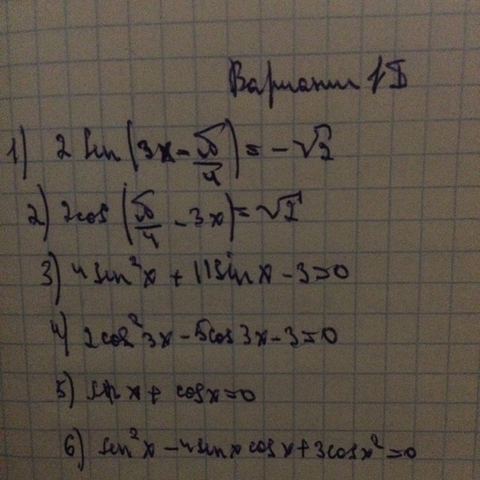 Вариант 1Б
1) 2 sin (3x - π/4) = -√2
2) 2cos (π/4 - 3x) = √2
3) 4sin²x + 11sinx - 3=0
4) 2cos²3x - 5cos3x - 3=0
5) sinx + cosx=0
6) sin²x - 4sinxcosx + 3cosx²=0